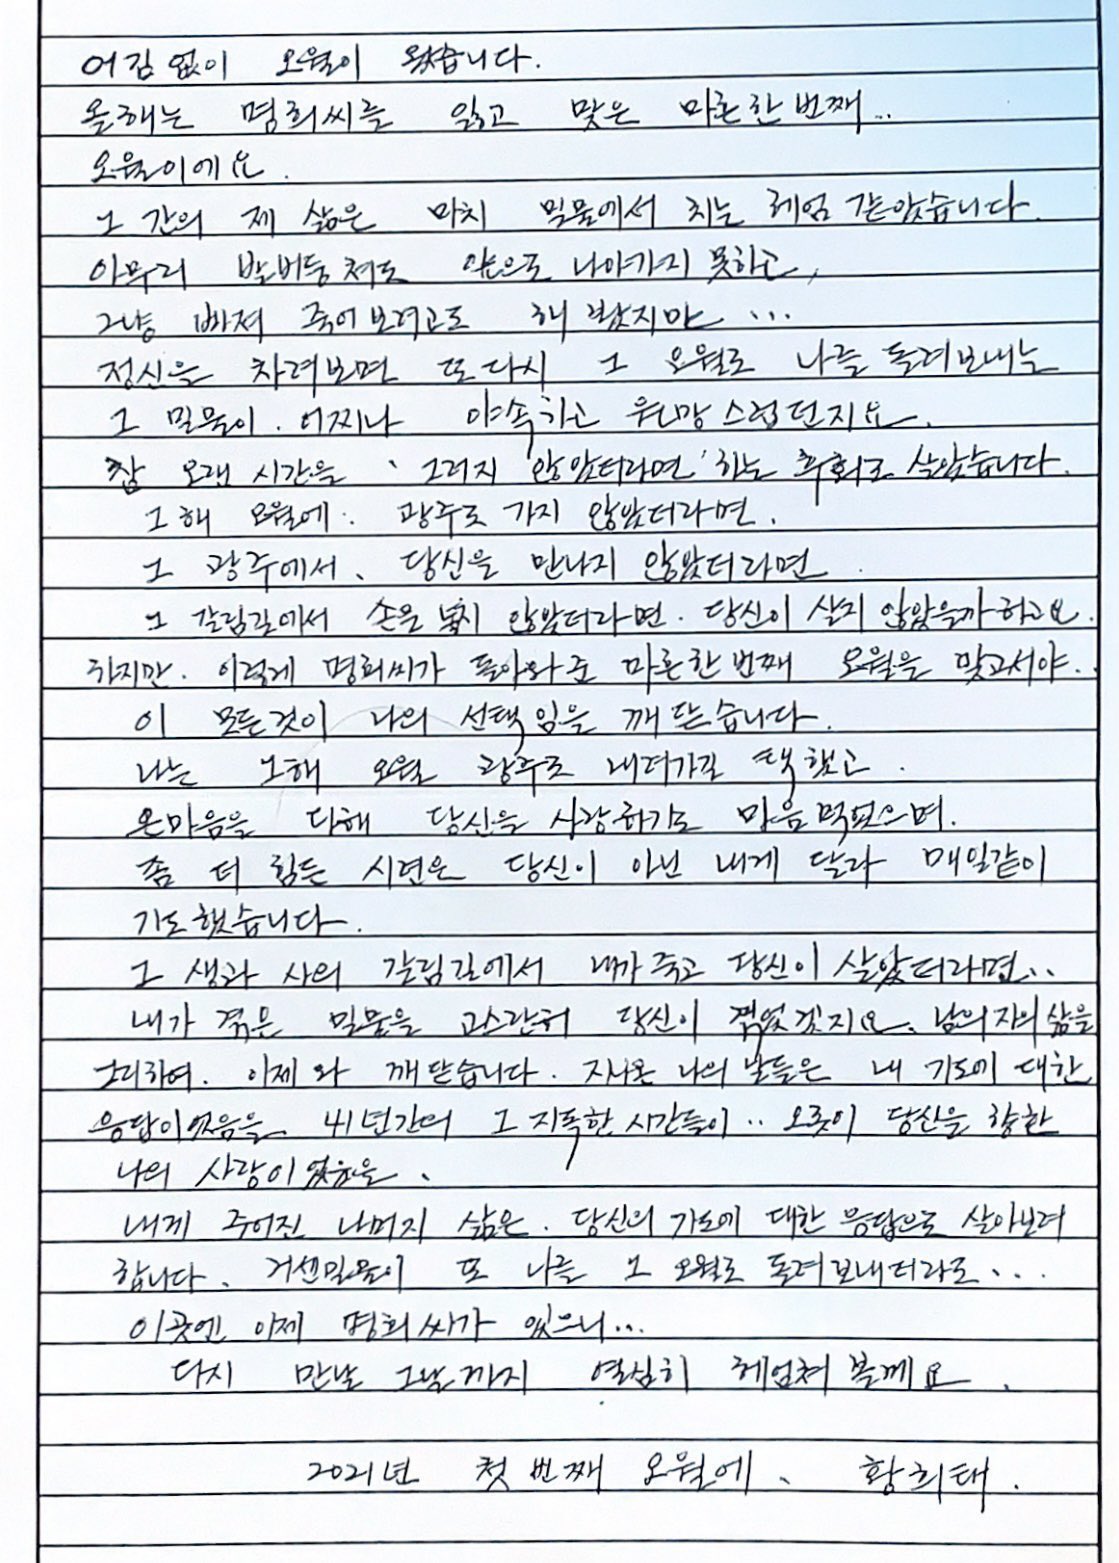 어김없이 오월이 왔습니다.
올해는 명희씨를 잃고 맞은 마흔한번째..
오월이에요.
그 간의 제 삶은 마치 밀물에서 치는 헤엄 같았습니다.
아무리 발버둥쳐도 앞으로 나아가지 못하고,
그냥 빠져 죽어보려고도 해 봤지만 ...
정신을 차려보면 또 다시 그 오월로 나를 돌려보내는
그 밀물이. 어찌나 야속하고 원망스럽던지요.
참 오랜 시간을 '그러지 않았더라면' 하는 후회로 살았습니다.
그해 오월에. 광주로 가지 않았더라면.
그 광주에서. 당신을 만나지 않았더라면.
그 갈림길에서 손을 놓지 않았더라면. 당신이 살지 않았을까 하고요.
하지만. 이렇게 명희씨가 돌아와준 마흔한번째 오월을 맞고서야..
이 모든것이 나의 선택임을 깨닫습니다.
나는 그해 오월 광주로 내려가길 택했고.
온마음을 다해 당신을 사랑하기로 마음먹었으며.
좀 더 힘든 시련은 당신이 아닌 내게 달라 매일같이
기도했습니다.
그 생과 사의 갈림길에서 내가 죽고 당신이 살았더라면..
내가 겪은 밀물을 고스란히 당신이 겪었겠지요. 남은자의 삶을
그리하여. 이제와 깨닫습니다. 지나온 나의 날들은 내 기도에 대한
응답이었음을. 41년간의 그 지독한 시간들이.. 오롯이 당신을 향한
나의 사랑이었음을.
내게 주어진 나머지 삶은. 당신의 기도에 대한 응답으로 살아보려
합니다. 거센밀물이 또 나를 그 오월로 돌려보내더라도...
이곳엔 이제 명희씨가 있으니...
다시 만날 그날까지 열심히 헤엄쳐볼게요.
2021년 첫번째 오월에. 황희태.